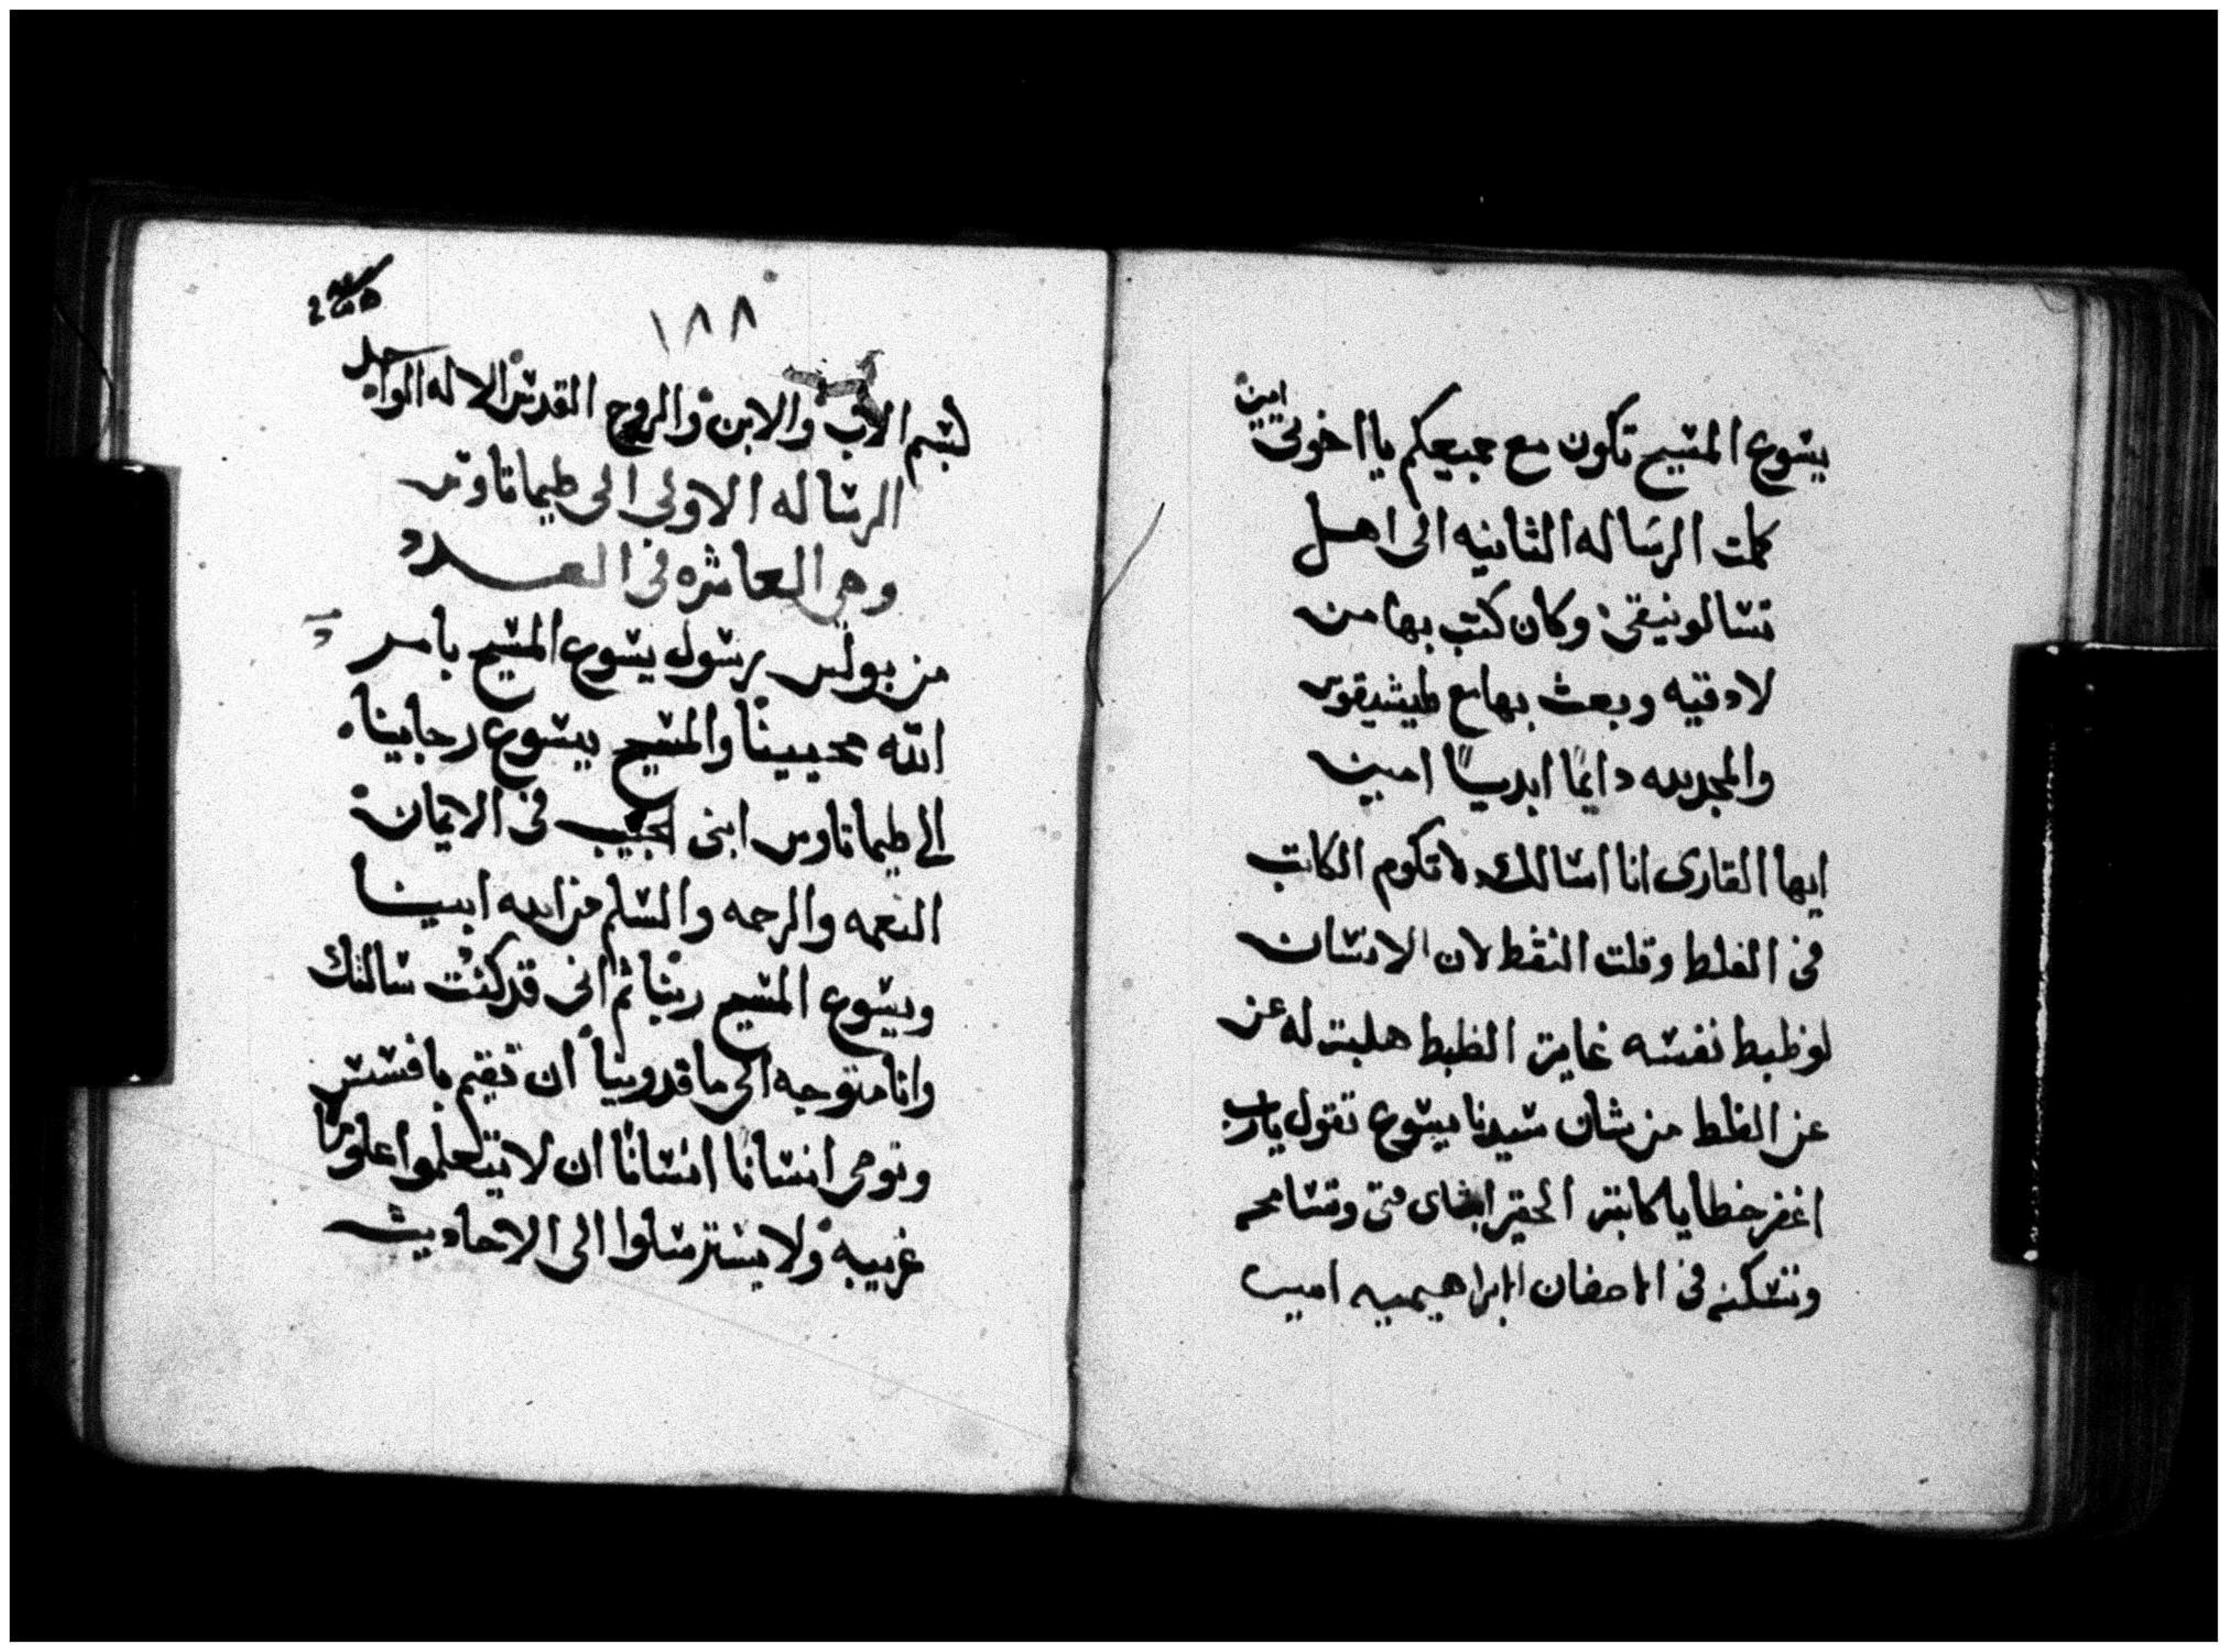 يسوع المسيح تكون مع جميعكم يا اخوتى امين
كملت الرساله الثانيه الى اهل
تسالونيقى وكان كتب بها من
لادقيه وبعث بها مع طيشيقوس
والمجد لله دايمًا ابديًا امين
ايها القارى انا اسالك لا تكوم الكاتب
فى الغلط وقلت النقط لان الانسان
لو ظبط نفسه غايت الظبط هلبت له عن
عن الغلط من شان سيدنا يسوع تقول يارب
اغفر خطايا كاتبه الحقير وتسامحه
وتسكنه فى الاحضان الابراهيميه امين
١٨٨
بسم الاب والابن والروح القدس الاله الواحد
الرساله الاولى الى طيماتاوس
وهى العاشره فى العدد
من بولس رسول يسوع المسيح بامر
الله محيينا والمسيح يسوع رجاينا
الى طيماتاوس ابنى الحبيب فى الايمان
النعمه والرحمه والسلم من الله ابينا
ويسوع المسيح ربنا ثم انى قد كنت سالتك
وانا متوجه الى ماقدونيا ان تقيم بافسس
وتوصى انسانا انسانا ان لا يتعلموا علومًا
غريبه ولا يسترسلوا الى الاحاديث